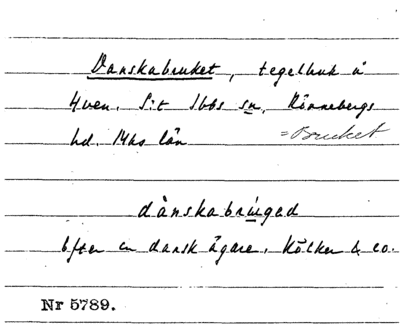 Danskabruket, tegelbruk å
Hven. S:t Ibbs sn, Rönnebergs
hd. Mhs län =Bruket
dånskabrúged
Efter en dansk ägare, Kölker & co.
Nr 5789.